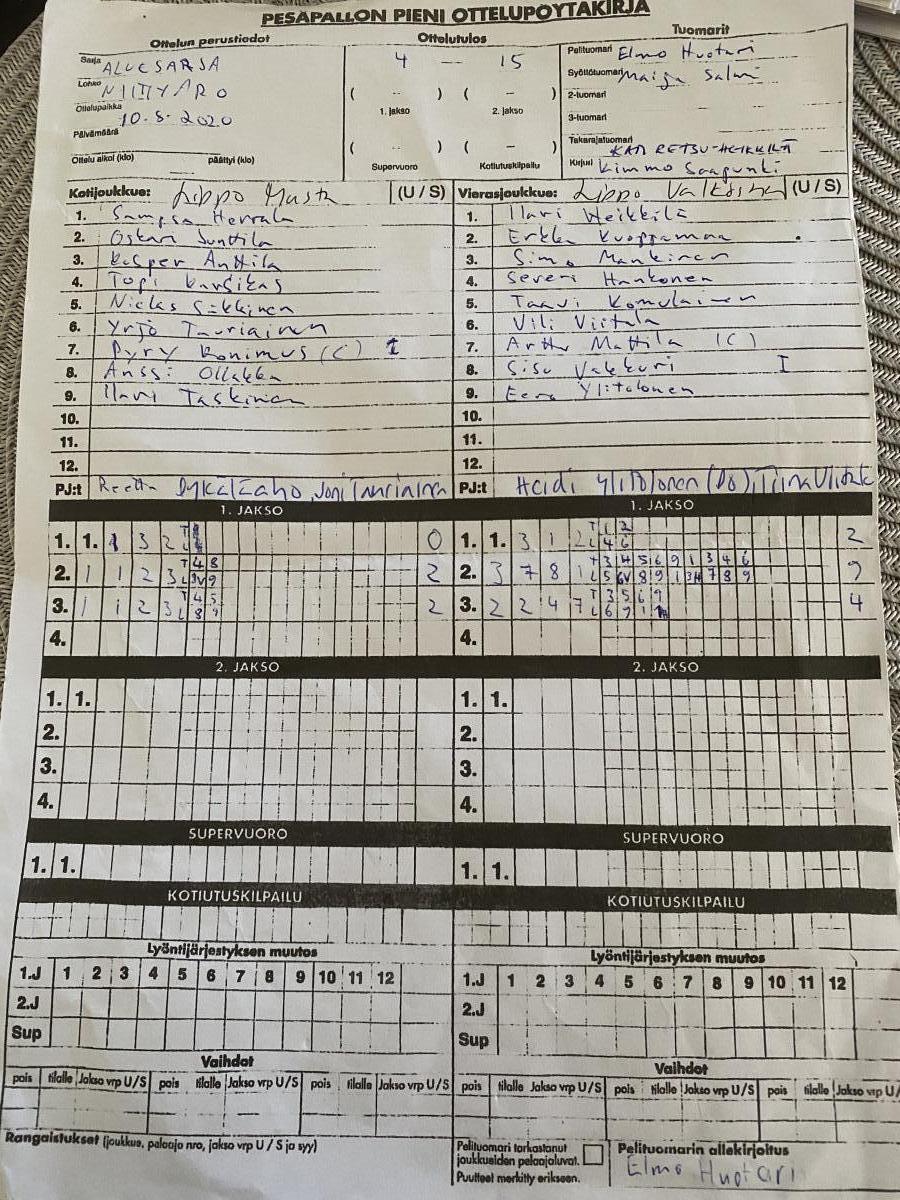 PESÄPALLON PIENI OTTELUPÖYTÄKIRJA
Ottelun perustiedot
Ottelutulos
Tuomarit
Sarja ALUESARJA
4 — 15
Pelituomari Elmo Huotari
Lohko NIITTYARO
Syöttötuomari Maija Salmi
( -- ) ( -- )
2-tuomari
Ottelupaikka
1. jakso 2. jakso
10.5.2020
3-tuomari
Päivämäärä
( -- ) ( -- )
Takarajatuomari KATI RETSU-HEIKKILÄ
Ottelu alkoi (klo) päättyi (klo)
Supervuoro Kotiutuskilpailu
Kirjuri Kimmo Saapunki
Kotijoukkue: Lippo Musta (U / S)
Vierasjoukkue: Lippo (U / S)
1. Sampsa Herrala
1. Ilari Heikkilä
2. Oskari Junttila
2. Erkka Kuoppamaa
3. Kasper Anttila
3. Simo Mankinen
4. Topi
4. Severi Hankonen
5. Niclas Sikkinen
5. Taavi Komulainen
6. Yrjö Tauriainen
6. Vili Viitala
7. Pyry Konimus (C) I
7. Arttu Mattila (C)
8. Anssi Ollakka
8. Sisu Vakkuri I
9. Ilari Taskinen
9. Eero Ylitolonen
10.
10.
11.
11.
12.
12.
PJ:t Reetta Joni Tauriainen
PJ:t Heidi Ylitolonen (Po), Tiina Viitala
1. JAKSO
1. JAKSO
1. 1. 1 3 2 T L 0
1. 1. 3 1 2 T 1 2 L 4 6 2
2. 1 1 2 3 T 4 8 L JV 9 2
2. 3 7 8 1 T 3 4 5 6 9 1 3 4 6 L 5 6V 8 9 1 3H 7 8 9 9
3. 1 1 2 3 T 4 5 L 8 9 2
3. 2 2 4 7 T 3 5 6 9 L 6 9 1 4
4.
4.
2. JAKSO
2. JAKSO
1. 1.
1. 1.
2.
2.
3.
3.
4.
4.
SUPERVUORO
SUPERVUORO
1. 1.
1. 1.
KOTIUTUSKILPAILU
KOTIUTUSKILPAILU
Lyöntijärjestyksen muutos
Lyöntijärjestyksen muutos
1.J 1 2 3 4 5 6 7 8 9 10 11 12
1.J 1 2 3 4 5 6 7 8 9 10 11 12
2.J
2.J
Sup
Sup
Vaihdot
Vaihdot
pois tilalle Jakso vrp U/S pois tilalle Jakso vrp U/S pois tilalle Jakso vrp U/S
pois tilalle Jakso vrp U/S pois tilalle Jakso vrp U/S pois tilalle Jakso vrp U/
Rangaistukset (joukkue, pelaaja nro, jakso vrp U / S ja syy)
Pelituomari tarkastanut
joukkueiden pelaajaluvat.
Puutteet merkitty erikseen.
Pelituomarin allekirjoitus
Elmo Huotari